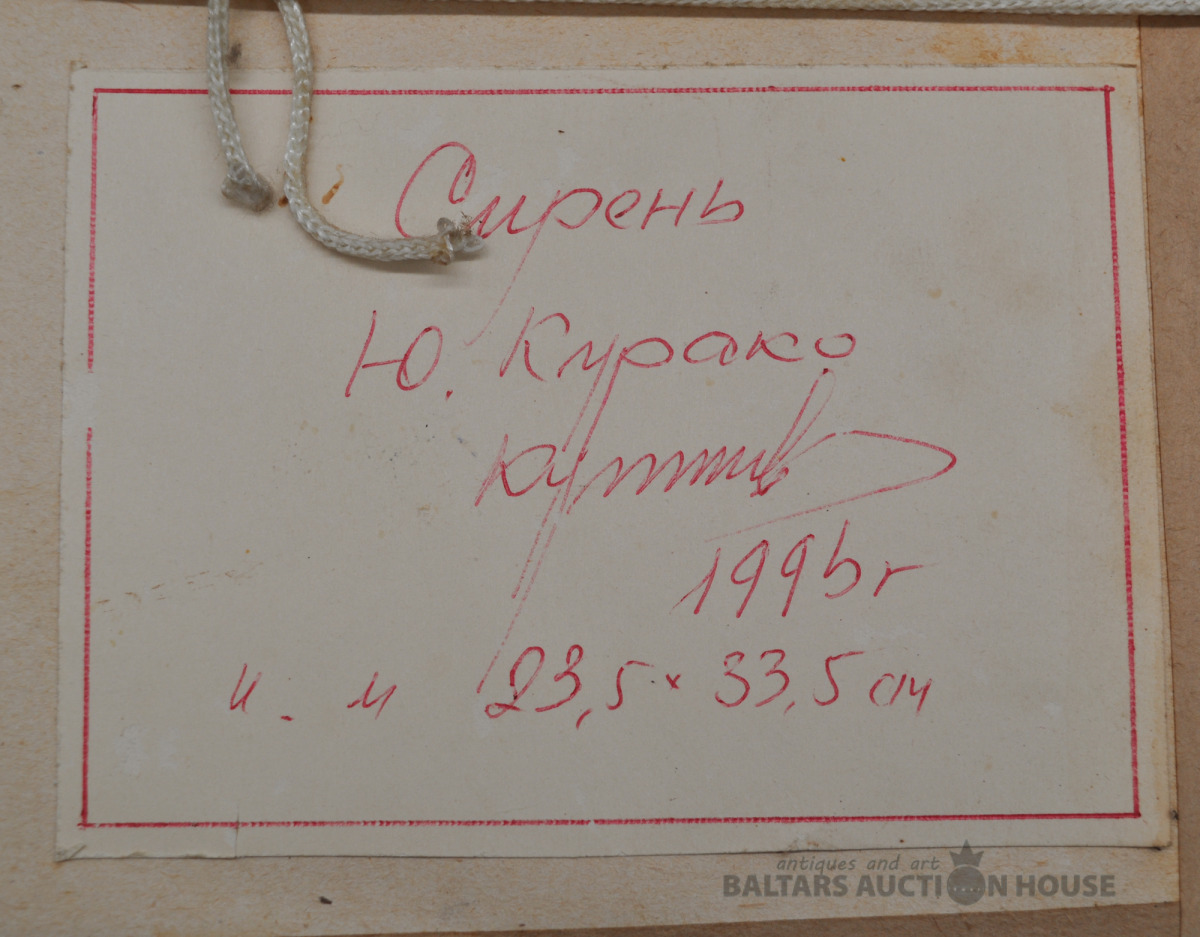 Сирень
Ю. Курако
1996 г
к. м 23,5 × 33,5 см
antiques and art
BALTARS AUCTION HOUSE